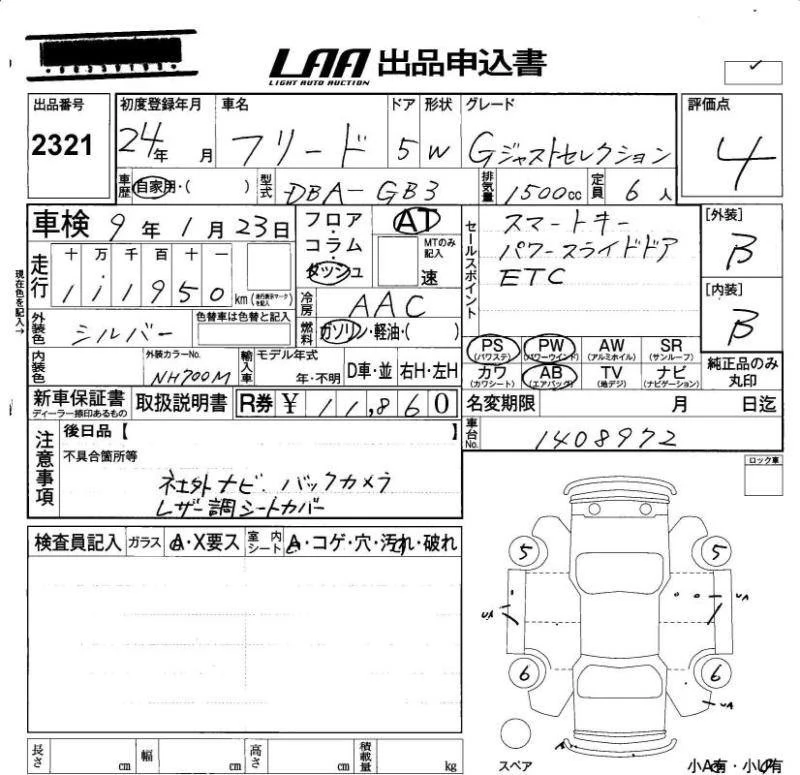 LAA 出品申込書
LIGHT AUTO AUCTION
出品番号 初度登録年月 車名 ドア 形状 グレード 評価点
2321 24年 月 フリード 5 W Gジャストセレクション 4
車歴 自家用・( ) 型式 DBA-GB3 排気量 1500cc 定員 6人
車検 9年1月23日 フロア・コラム・ダッシュ AT セールスポイント スマートキー [外装]
MTのみ記入 速 パワースライドドア B
走行 十 万 千 百 十 一 ETC [内装]
111950 km (走行表示マークを記入) 冷房 AAC B
現在色を記入→
外装色 シルバー 色替車は色替と記入 燃料 ガソリン・軽油・( ) PS (パワステ) PW (パワーウインド) AW (アルミホイル) SR (サンルーフ) 純正品のみ丸印
内装色 外装カラーNo. NH700M 輸入車 モデル年式 年・不明 D車・並 右H・左H カワ (カワシート) AB (エアバッグ) TV (地デジ) ナビ (ナビゲーション)
新車保証書 ディーラー捺印あるもの 取扱説明書 R券 ¥ 11,860 名変期限 月 日迄
注意事項 後日品【 】 車台No. 1408972
不具合箇所等 ロック車
社外ナビ、バックカメラ
レザー調シートカバー
検査員記入 ガラス A・X要ス 室内シート A・コゲ・穴・汚れ・破れ
5 5
UA UA
6 6
UA
A
長さ cm 幅 cm 高さ cm 積載量 kg スペア 小A有・小U有